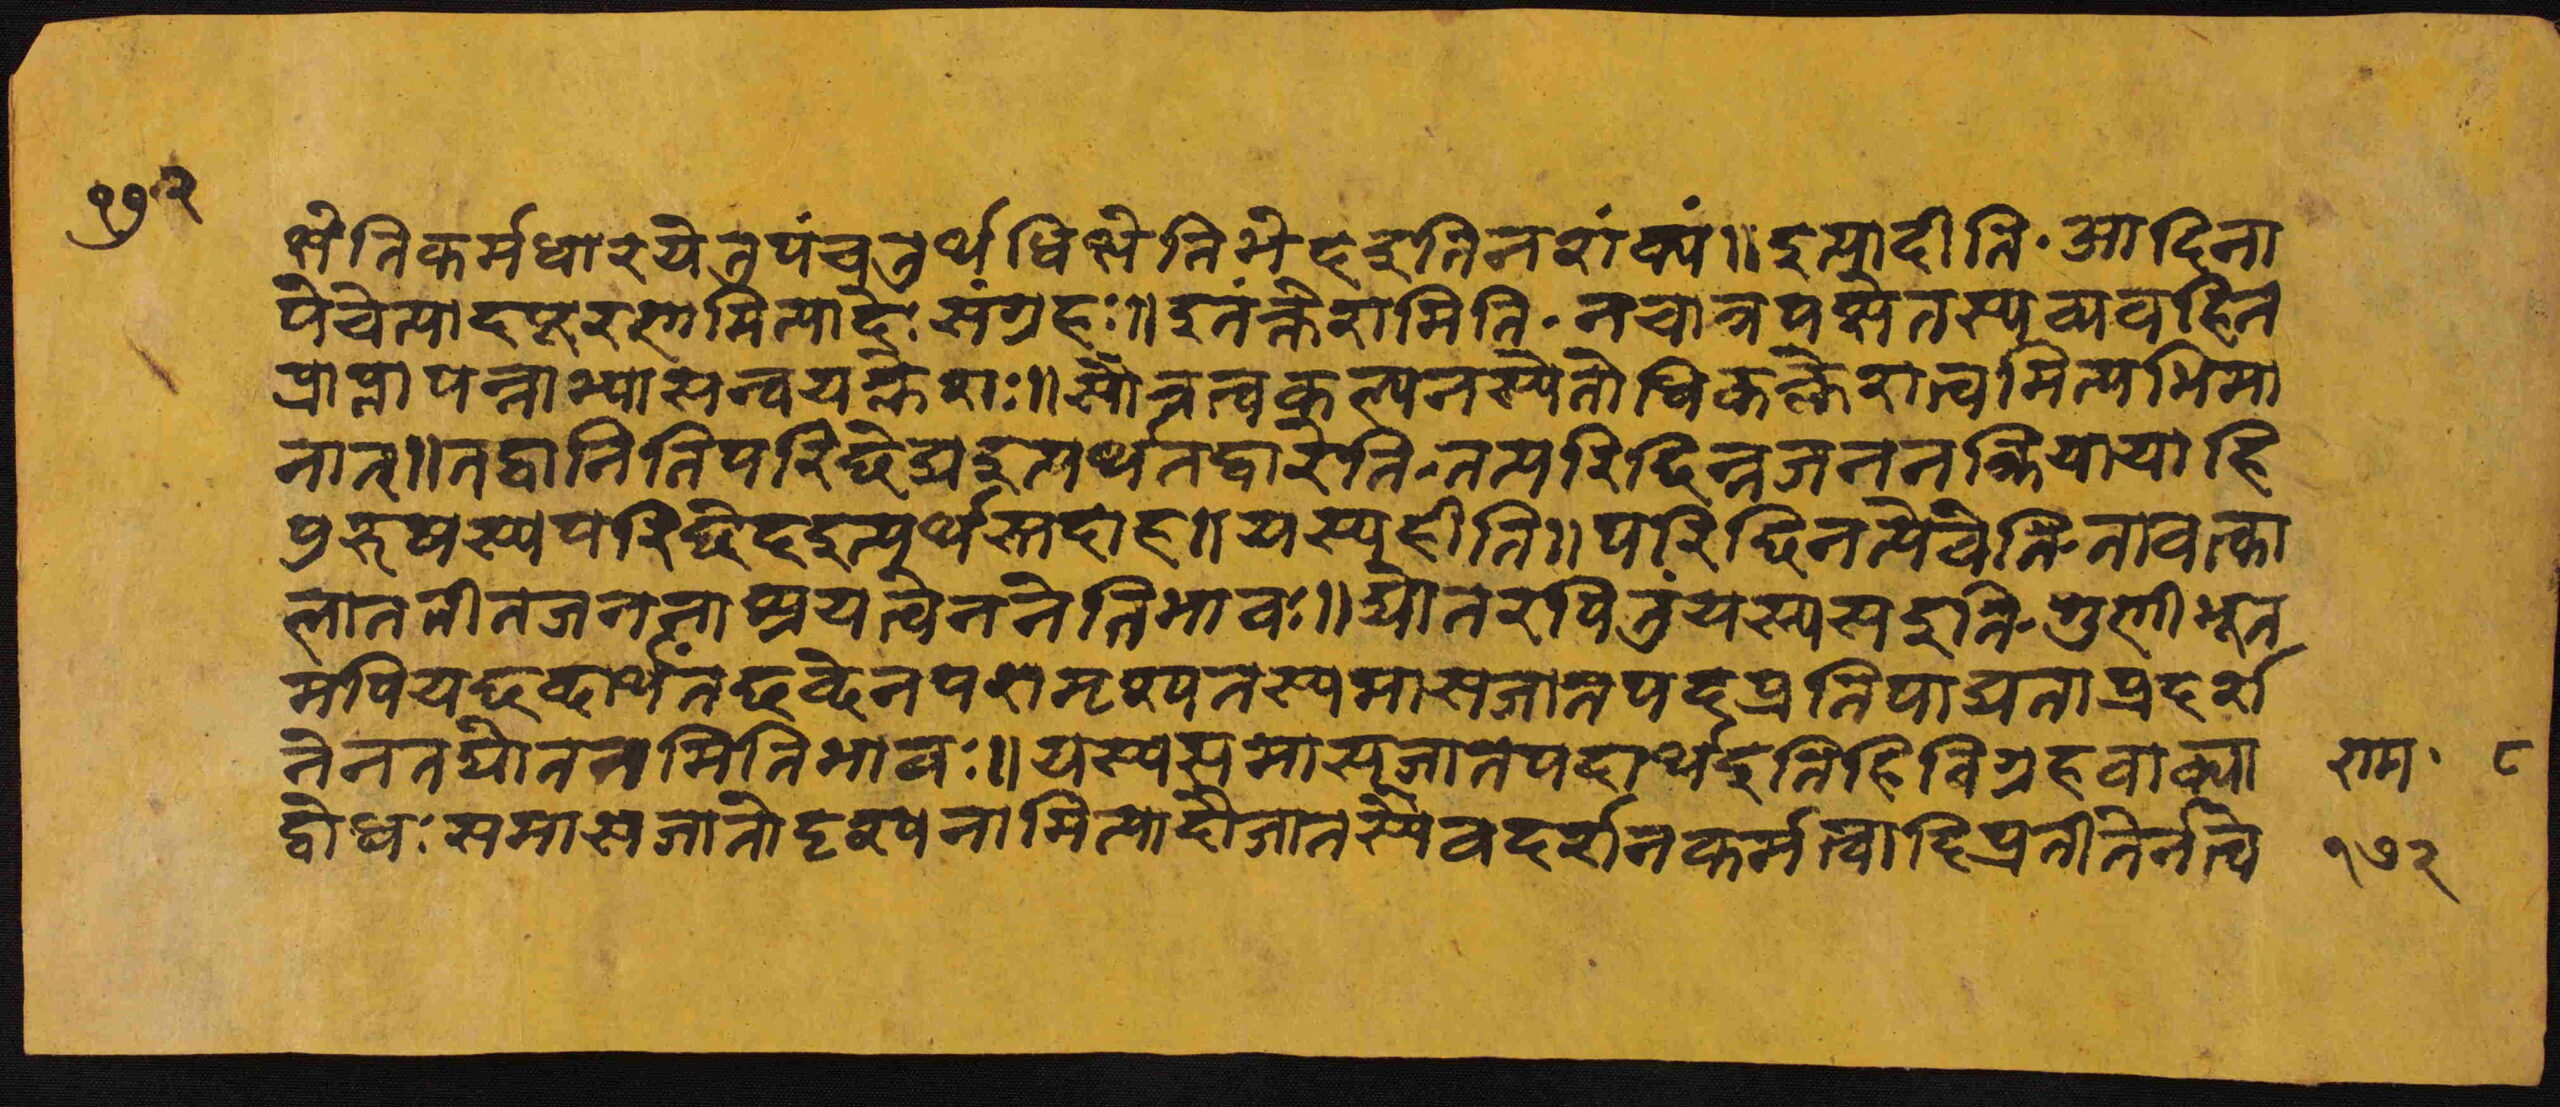 १७२
क्षेतिकर्मधारयेतुपंचतुर्थधिक्षेतिभेदइतिनशंक्यं॥इत्यादीति॰आदिना
पेचेत्यादप्पूरणामित्यादेः संग्रहः॥इतंक्लेशमिति॰नचान्नपक्षेतस्यव्यवहिते
प्राप्तापन्नाभ्यासन्वयक्लेशः॥सौत्रत्वकल्पनस्येतोधिकक्लेशत्वमित्यभिमा
नात्॥तद्वानितिपरिछेद्यइत्यर्थतद्वारेति॰तत्परिछिन्नजननक्रियायाहि
पुरुषस्यपरिछेदइत्यर्थस्तदाह॥यस्यहीति॥परिछिनत्येवेति॰तावत्का
लातीतजननाश्रयत्वेननेतिभावः॥द्योतरपितुंयस्यसइति॰गुणीभूत
मपियछब्दार्थंतछब्देनपरामृश्यतस्यमासजातपदप्रतिपाद्यताप्रदर्श
नेनतद्योतनमितिभावः॥यस्यसमासजातपदार्थइतिहिविग्रहवाक्या
द्बोधः समासजातोदृश्यनामित्यादौजातस्यैवदर्शनकर्मत्वाहिप्रतीतेर्नत्वे
राम॰ ८
१७२